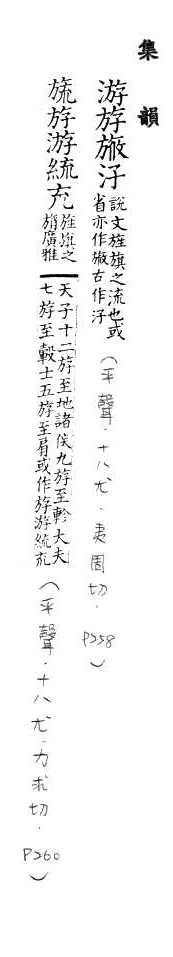 集韻
游斿㫍汓 說文旌旗之流也或
省亦作㫍古作汓(平聲.十八尤.夷周切.P258)
旒斿游統充 旌旗之
旓廣雅
天子十二斿至地諸侯九斿至軫大夫
七斿至轂士五斿至肩或作斿游統充(平聲.十八尤.力求切.P260)